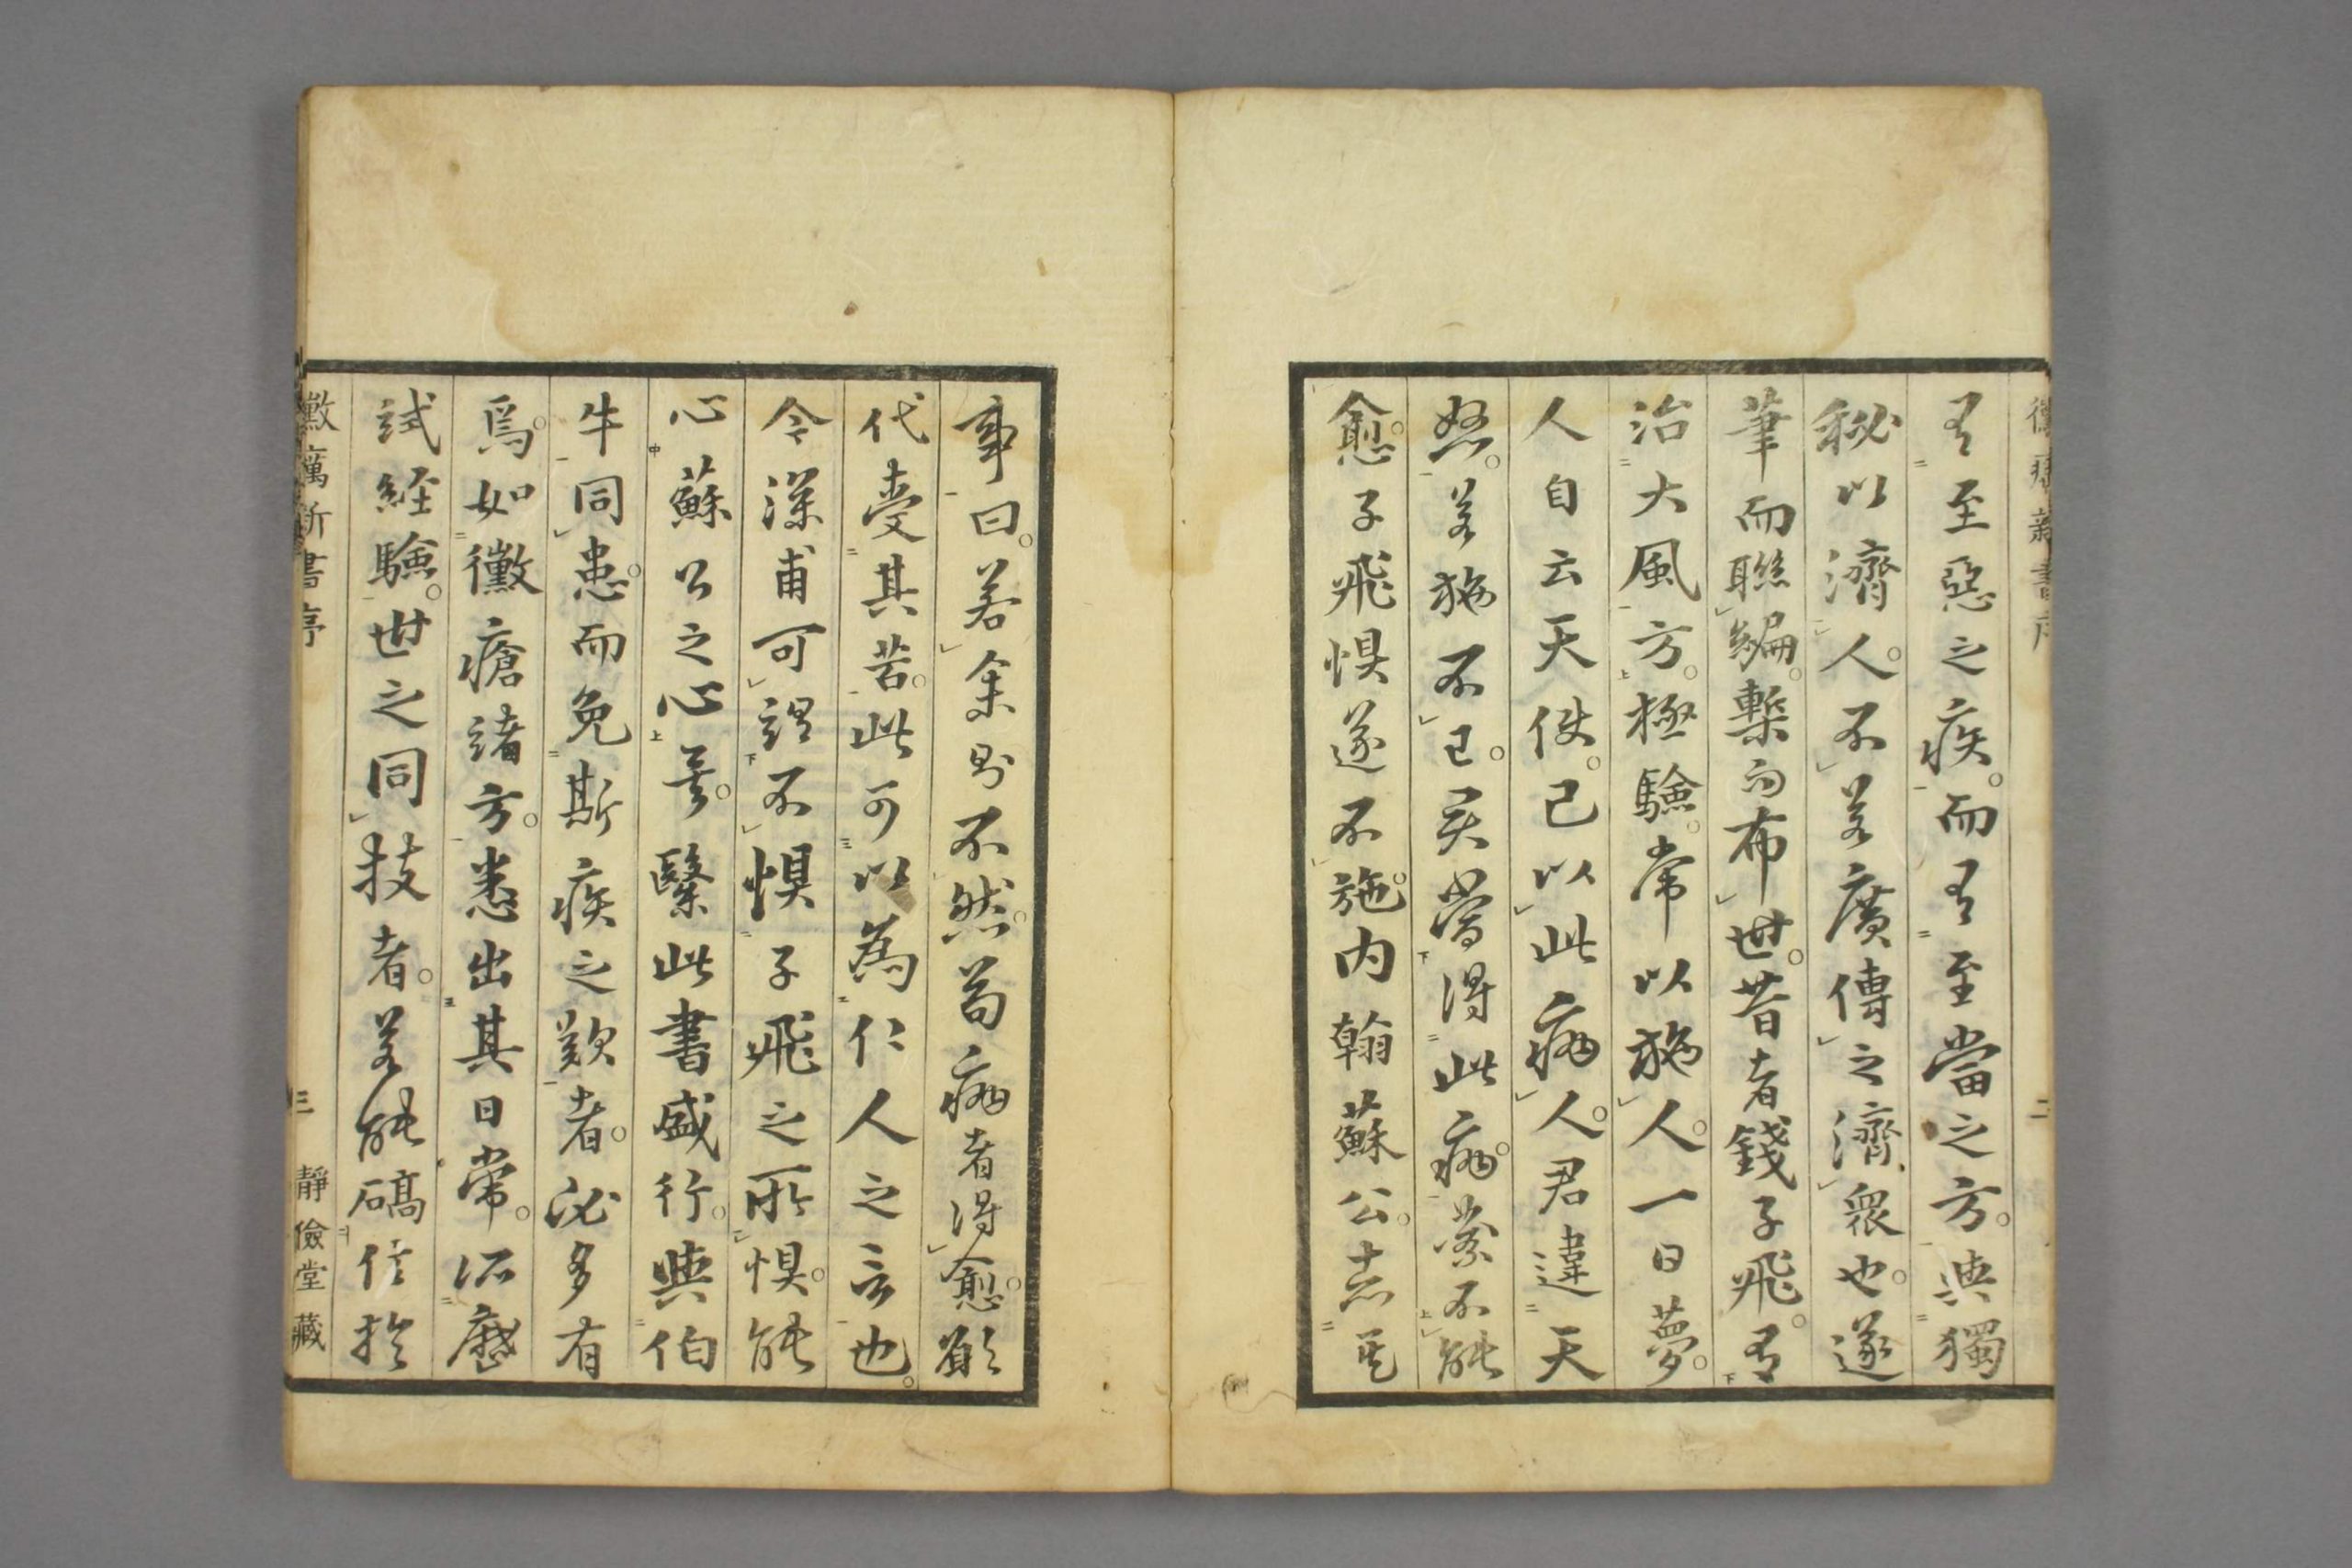 黴癘新書序
二
有至惡之疾。而有至當之方。與獨
秘以濟人。不若廣傳之濟衆也。遂
筆而聯編。槧而布世。昔者錢子飛。有
治大風方。極驗。常以施人。一日夢。
人自云天使。已以此病人。君違天
怒。若施不已。君當得此病。藥不能
愈。子飛惧遂不施。内翰蘇公。志其
事曰。若余則不然。苟病者得愈。願
代受其苦。此可以為仁人之言也。
今渫甫可謂不惧子飛之所惧。能
心蘇公之心矣。繄此書盛行。與伯
牛同患。而免斯疾之歎者。必多有
焉。如黴瘡諸方。悉出其日常。所歷
試経驗。世之同技者。若能碻信於
黴癘新書序
三
靜儉堂藏